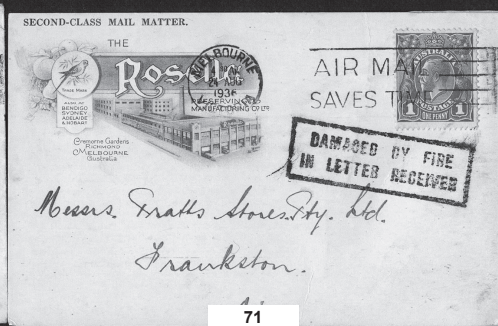 SECOND-CLASS MAIL MATTER.
THE
Rosella
PRESERVING &
MANUFACTURING CO LTD
TRADE MARK
ALSO AT
BENDIGO
SYDNEY
ADELAIDE
& HOBART
Cremorne Gardens
RICHMOND
MELBOURNE
Australia
MELBOURNE
1936
AIR MAIL
SAVES TIME
AUSTRALIA
POSTAGE
1 1
ONE PENNY
DAMAGED BY FIRE
IN LETTER RECEIVER
Messrs. Pratts Stores. Pty. Ltd.
Frankston.
71